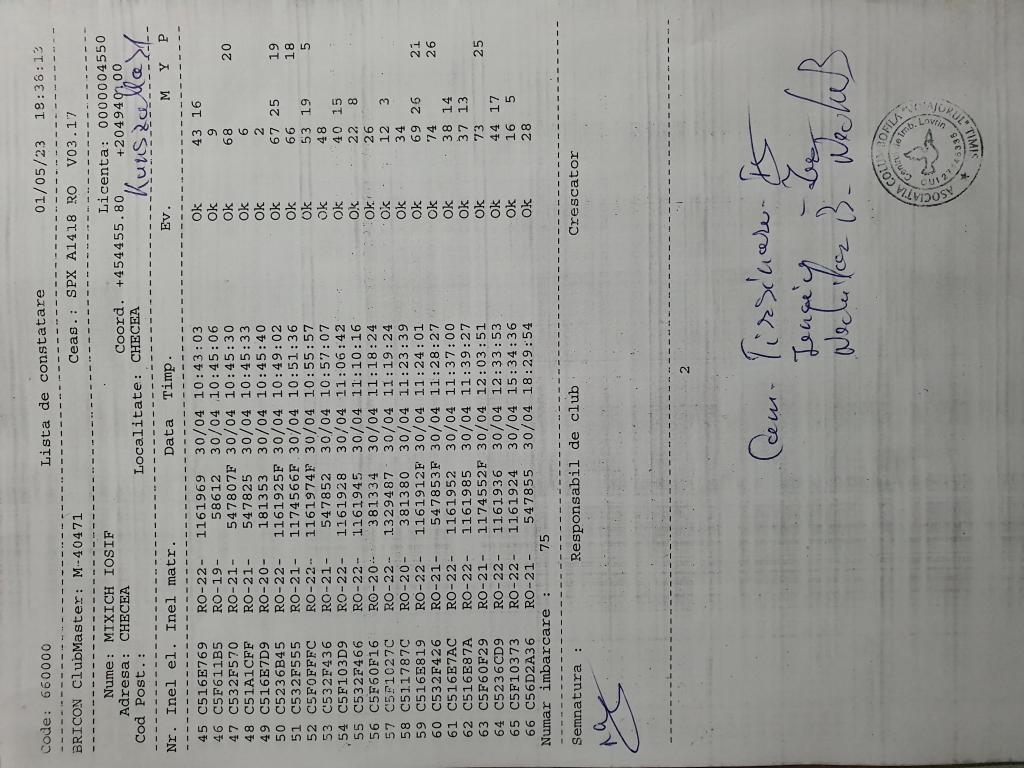 Code: 660000 Lista de constatare 01/05/23 18:38:13
BRICON ClubMaster: M-40471 Ceas.: SPX A1418 RO V03.17
Licenta: 0000004550
Nume: MIXICH IOSIF Coord. +454455.80 +204940.00
Adresa: CHECEA
Cod Post.: Localitate: CHECEA
Nr. Inel el. Inel matr. Data Timp. Ev. M Y P
45 C516E769 RO-22- 1161969 30/04 10:43:03 Ok 43 16
46 C5F611B5 RO-19- 58612 30/04 10:45:06 Ok 9
47 C532F570 RO-21- 547807F 30/04 10:45:30 Ok 68 20
48 C51A1CFF RO-21- 547825 30/04 10:45:33 Ok 6
49 C516E7D9 RO-20- 181353 30/04 10:45:40 Ok 2
50 C5236B45 RO-22- 1161925F 30/04 10:49:02 Ok 67 25 19
51 C532F555 RO-21- 1174566F 30/04 10:51:36 Ok 66 18
52 C5F0FFFC RO-22- 1161974F 30/04 10:55:57 Ok 53 19 5
53 C532F436 RO-21- 547852 30/04 10:57:07 Ok 48
54 C5F103D9 RO-22- 1161928 30/04 11:06:42 Ok 40 15
55 C532F466 RO-22- 1161945 30/04 11:10:16 Ok 22 8
56 C5F60F16 RO-20- 381334 30/04 11:18:24 Ok 26
57 C5F1027C RO-22- 1329487 30/04 11:19:24 Ok 12 3
58 C511787C RO-20- 381380 30/04 11:23:39 Ok 34
59 C516E819 RO-22- 1161912F 30/04 11:24:01 Ok 69 26 21
60 C532F426 RO-21- 547853F 30/04 11:28:27 Ok 74 26
61 C516E7AC RO-22- 1161952 30/04 11:37:00 Ok 38 14
62 C516E87A RO-22- 1161985 30/04 11:39:27 Ok 37 13
63 C5F60F29 RO-21- 1174552F 30/04 12:03:51 Ok 73 25
64 C5236CD9 RO-22- 1161936 30/04 12:33:53 Ok 44 17
65 C5F10373 RO-22- 1161924 30/04 15:34:36 Ok 16 5
66 C56D2A36 RO-21- 547855 30/04 18:29:54 Ok 28
Numar imbarcare : 75
Semnatura : Responsabil de club Crescator
2
ASOCIATIA COLUMBOFILA "VOIAJORUL" TIMIS